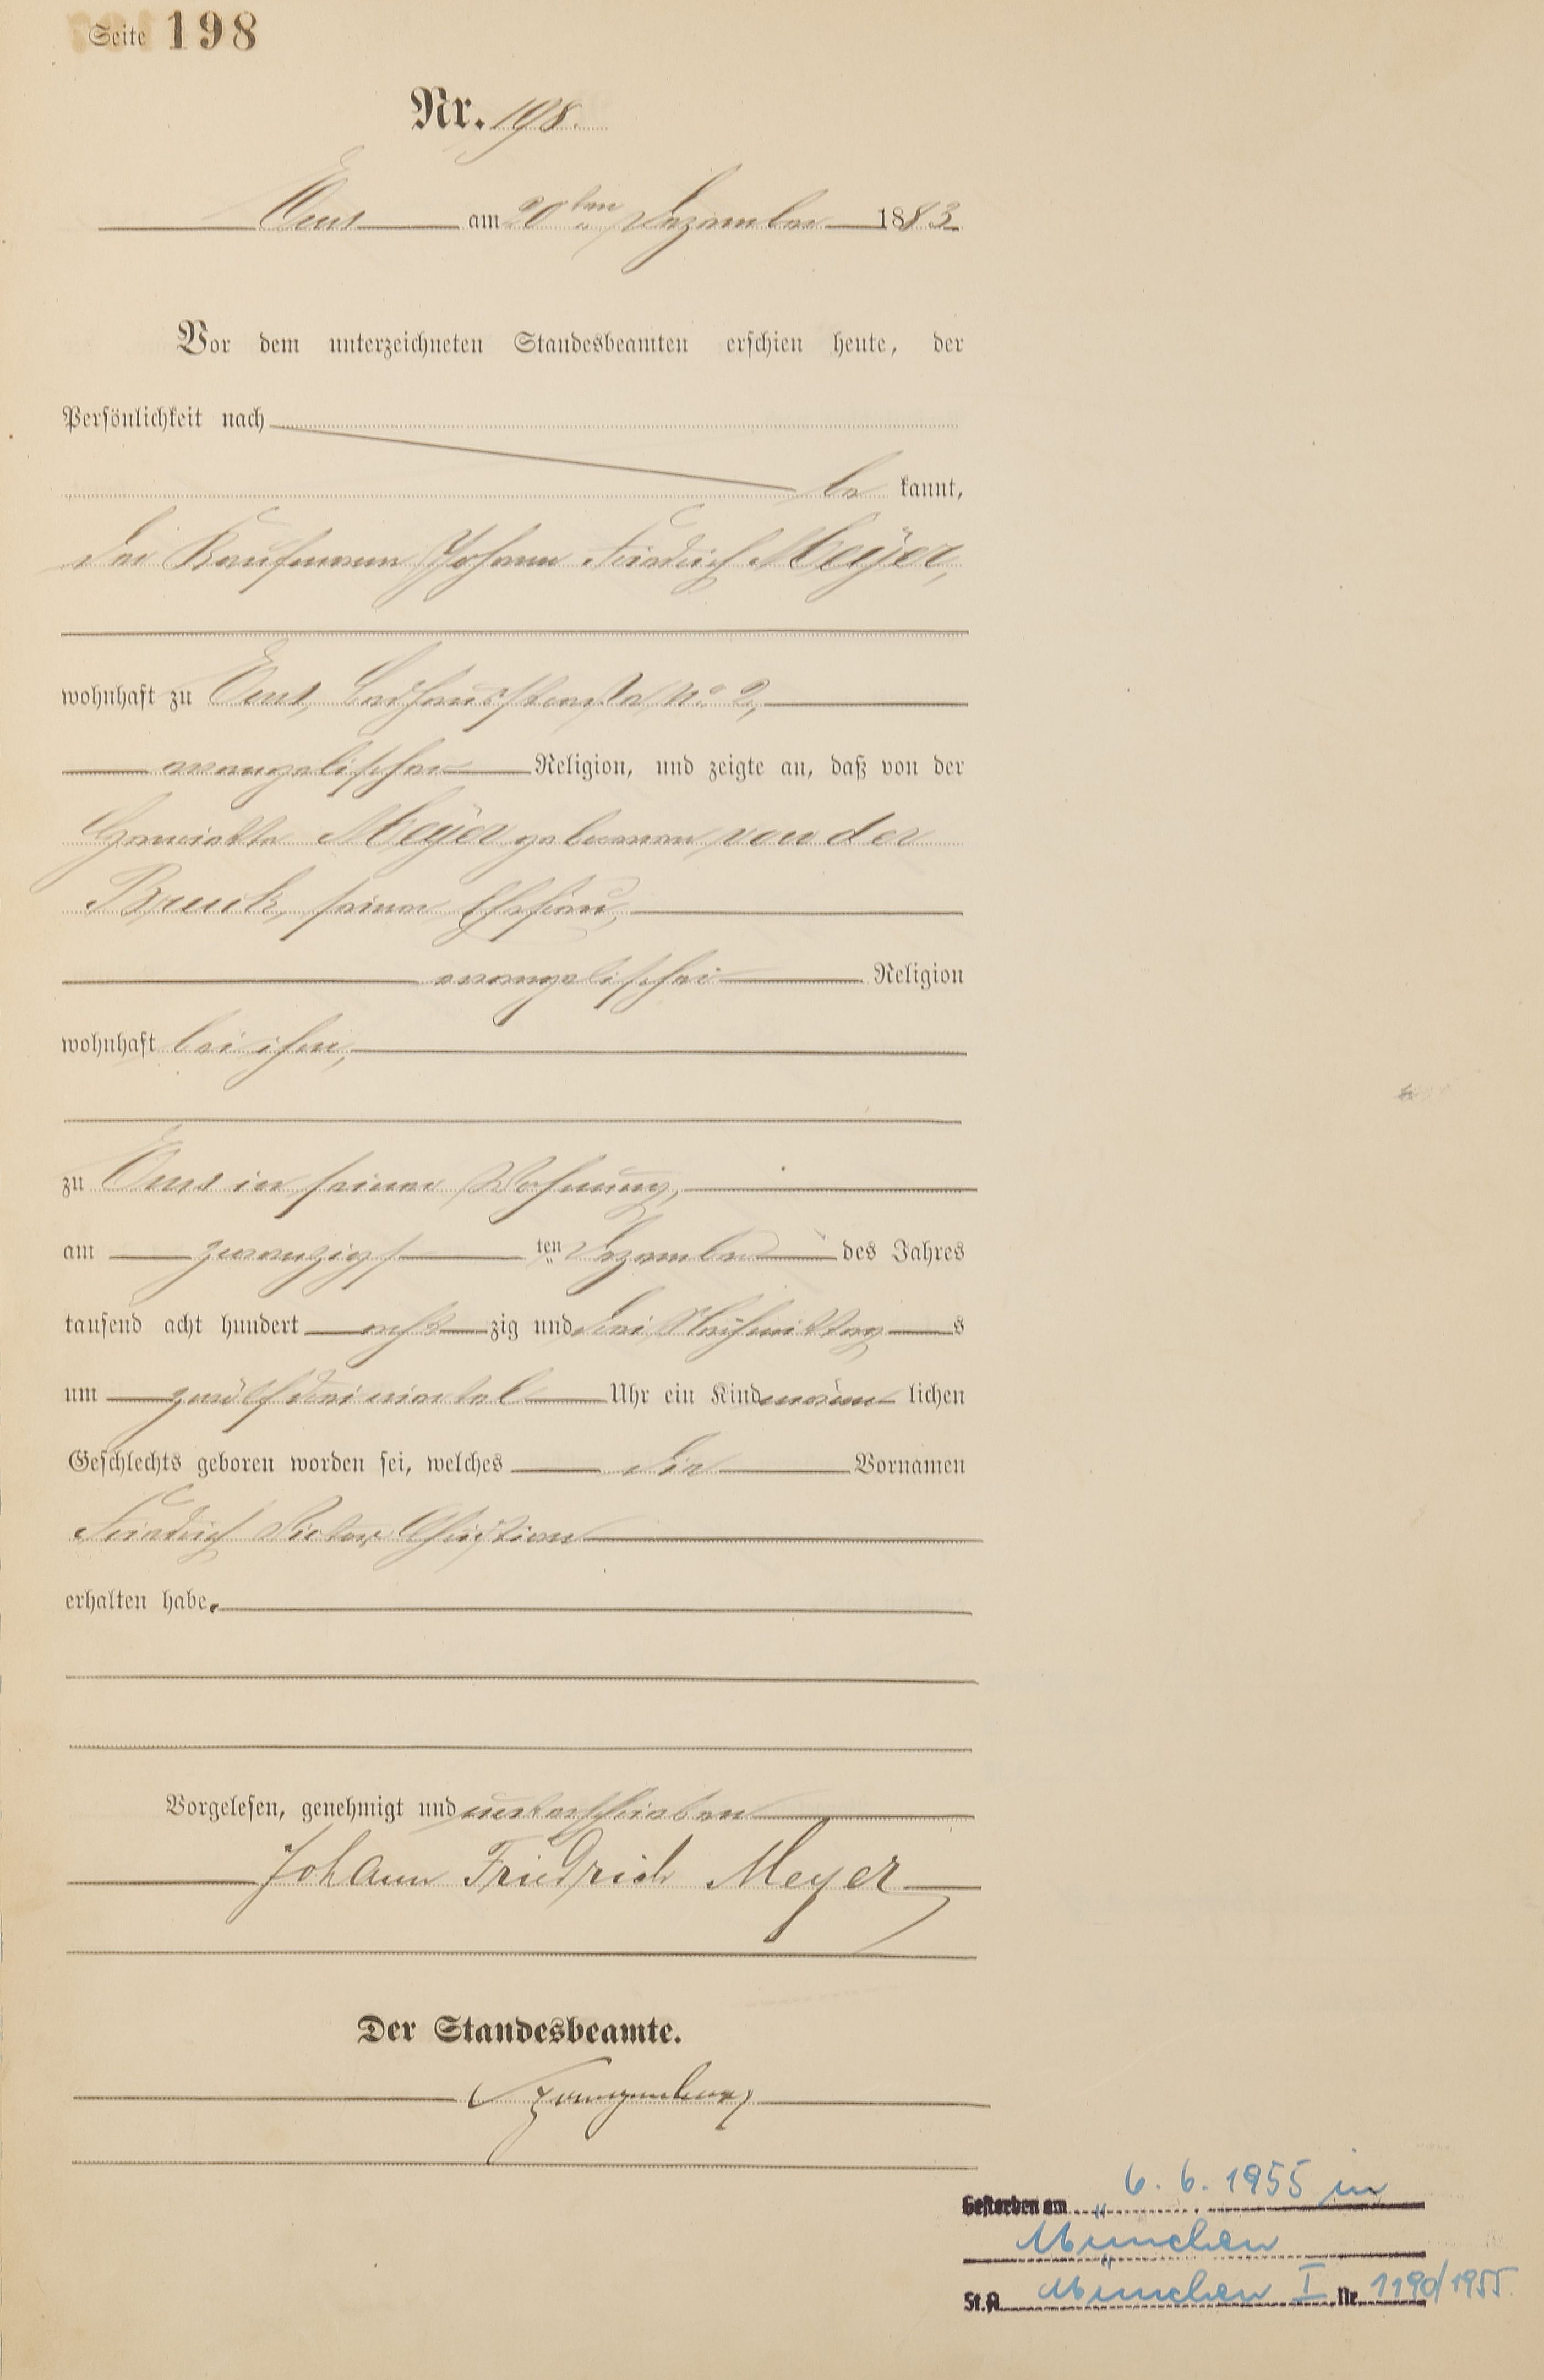 Seite 198
Nr. 198.
Ems am 20ten Dezember 1883.
Vor dem unterzeichneten Standesbeamten erschien heute, der
Persönlichkeit nach
be kannt,
der Kaufmann Johann Friedrich Meÿer,
wohnhaft zu Ems, Badhausstraße No. 2,
evangelischer Religion, und zeigte an, daß von der
Henriette Meÿer geborenen von der
Bruck, seiner Ehefrau,
evangelischer Religion
wohnhaft bei ihm,
zu Ems in seiner Wohnung,
am zwanzigsten Dezember des Jahres
tausend acht hundert acht zig und drei Nachmittag s
um zwölf dreiviertel Uhr ein Kind männ lichen
Geschlechts geboren worden sei, welches die Vornamen
Friedrich Victor Christian
erhalten habe.
Vorgelesen, genehmigt und unterschrieben
Johann Friedrich Meyer
Der Standesbeamte.
Gestorben am 6. 6. 1955 in
München
St.A. München I Nr. 1190/1955